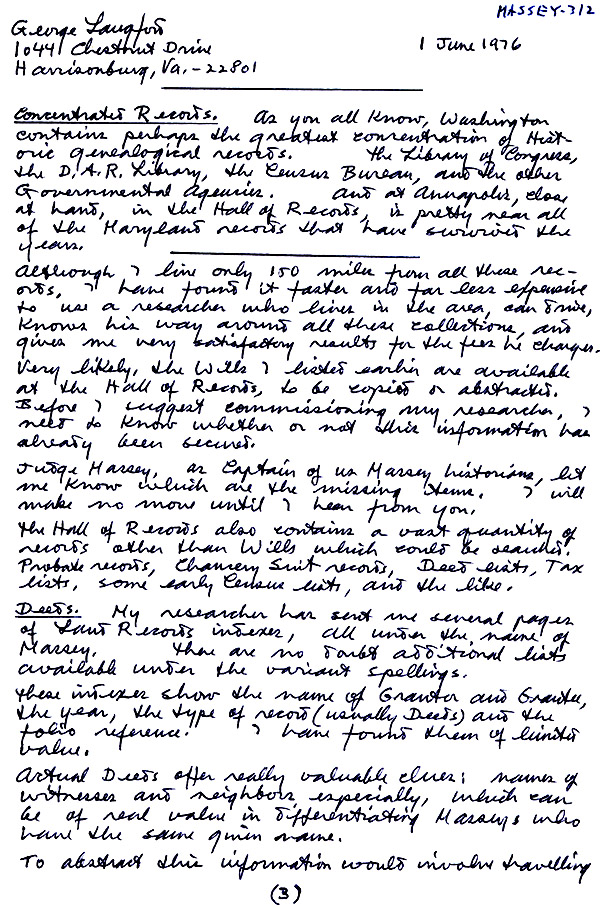 MASSEY-312
George Langford
1 June 1976
1044 Chestnut Drive
Harrisonburg, Va. - 22801
Concentrated Records. As you all know, Washington
contains perhaps the greatest concentration of Hist-
oric genealogical records. The Library of Congress,
the D.A.R. Library, the Census Bureau, and the other
Governmental Agencies. And at Annapolis, close
at hand, in the Hall of Records, is pretty near all
of the Maryland records that have survived the
years.
Although I live only 150 miles from all these rec-
ords, I have found it faster and far less expensive
to use a researcher who lives in the area, can drive,
knows his way around all these collections, and
gives me very satisfactory results for the fees he charges.
Very likely, the Wills I listed earlier are available
at the Hall of Records, to be copied or abstracted.
Before I suggest commissioning my researcher, I
need to know whether or not this information has
already been secured.
Judge Massey, as Captain of us Massey historians, let
me know which are the missing items. I will
make no move until I hear from you.
The Hall of Records also contains a vast quantity of
records other than Wills which could be searched.
Probate records, Chancery Suit records, Deed lists, Tax
lists, some early Census lists, and the like.
Deeds. My researcher has sent me several pages
of Land Records indexes, all under the name of
Massey. There are no doubt additional lists
available under the variant spellings.
These indexes show the name of Grantor and Grantee,
the year, the type of record (usually Deeds) and the
folio reference. I have found them of limited
value.
Actual Deeds offer really valuable clues: names of
witnesses and neighbors especially, which can
be of real value in differentiating Masseys who
have the same given name.
To abstract this information would involve travelling
(3)